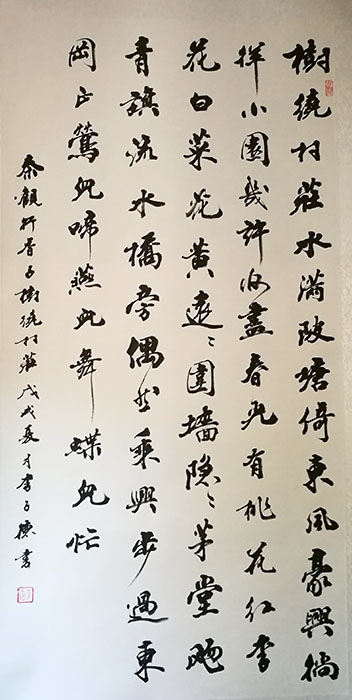 樹繞村莊水滿陂塘倚東風豪興徜
徉小園幾許收盡春光有桃花紅李
花白菜花黃遠〻圍墻隱〻茅堂颺
青旗流水橋旁偶然乘興步過東
岡正鶯兒啼燕兒舞蝶兒忙
秦觀行香子樹繞村莊戊戌夏李子書